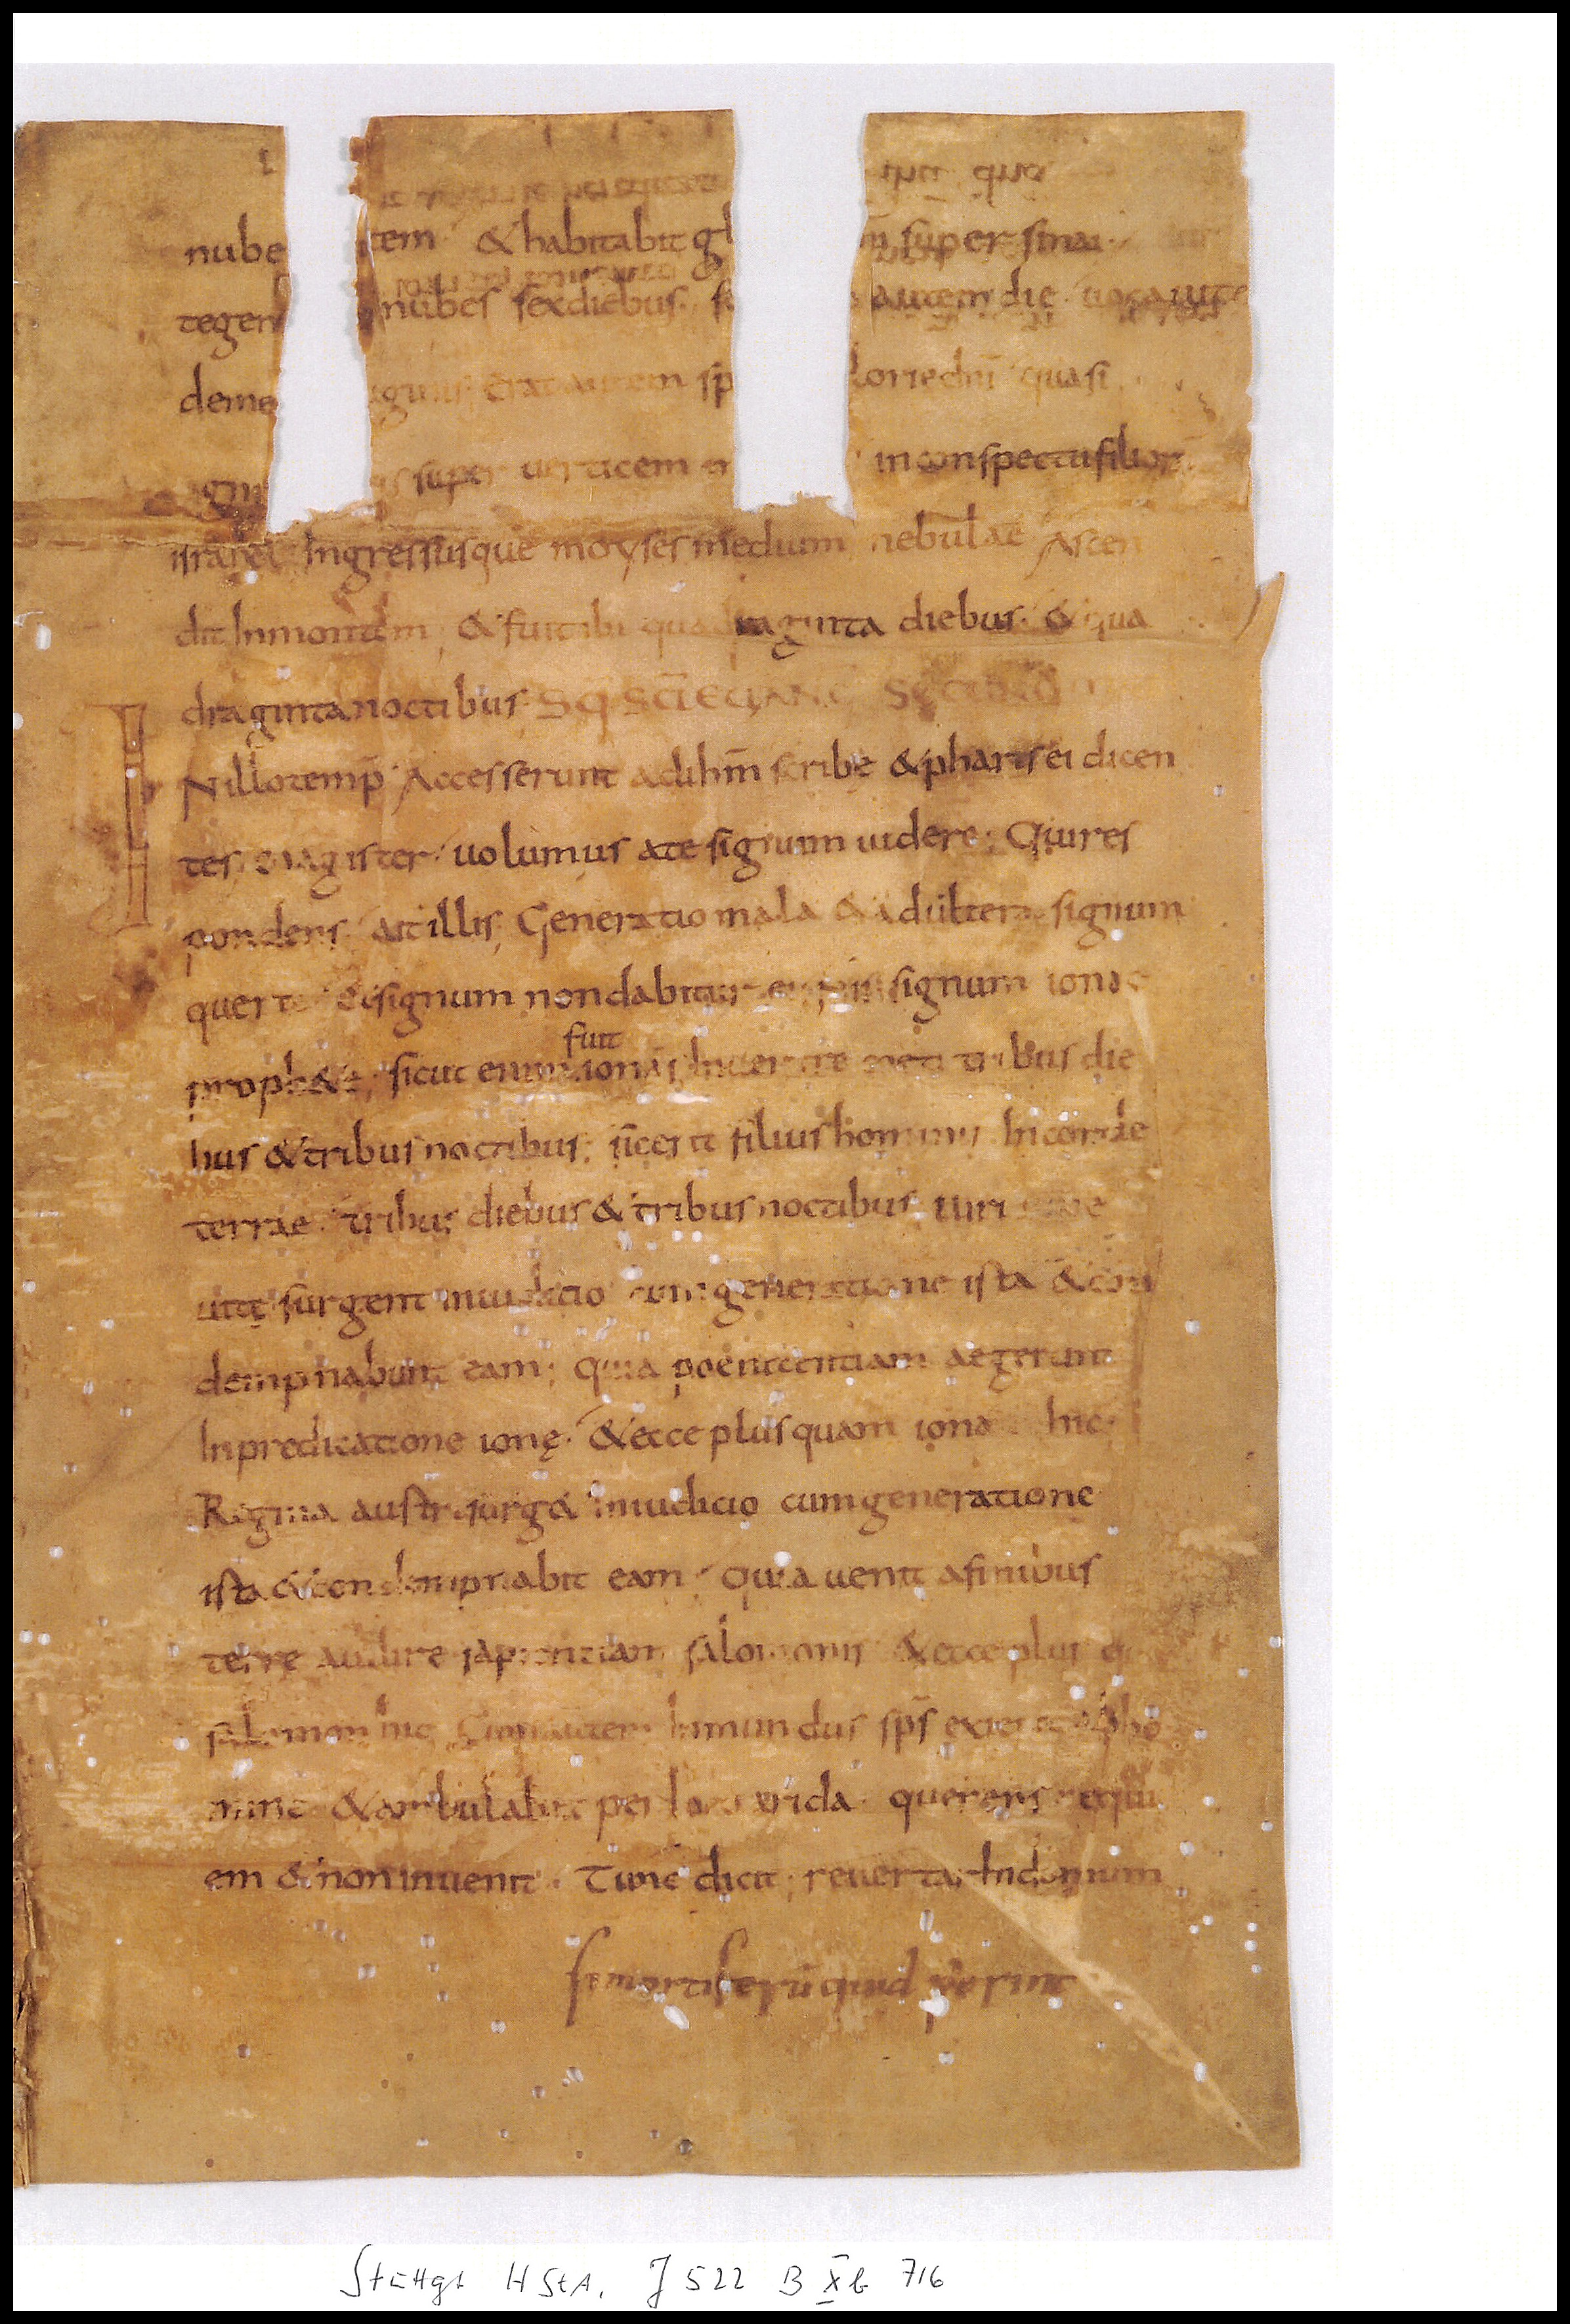 nube tem & habitabit gl super sinai
tegen nubes sex diebus. autem die uoca
deme ignis erat autem sp lorie dni quasi
igni s super uerticem in conspectu filior
israhel Ingressusque moyses medium nebulae Ascen
dit In montem, & fuit ibi quadraginta diebus. & qua
draginta noctibus SQ SCI EUANG SECUND
IN illo temp̄. Accesserunt ad ihm̄ scribę & pharisei dicen
tes magister uolumus a te signum uidere; Qui res
pondens ait illis, Generatio mala & adultera signum
querit & signum non dabitur ei nisi signum ionae
prophetae, sicut enim fuit ionas In uentre ceti tribus die
bus & tribus noctibus; sic erit filius hominis In corde
terrae tribus diebus & tribus noctibus, uiri
uitę surgent in iudicio cum generatione ista & con
dempnabunt eam; quia poenitentiam aegerunt
In predicatione ionę. & ecce plus quam iona hic
Regina austri surg& in iudicio cum generatione
ista & condempnabit eam quia uenit a finibus
terrę audire sapientiam salomonis & ecce plus q
salomon hic Cum autem Inmundus sp̄s exierit ab ho
mine & ambulabit per loca arida querens requi
em & non inuenit. Tunc dicit; reuertar In domum
si mortiferū quid
Stuttgt HStA, J 522 B Xb 716